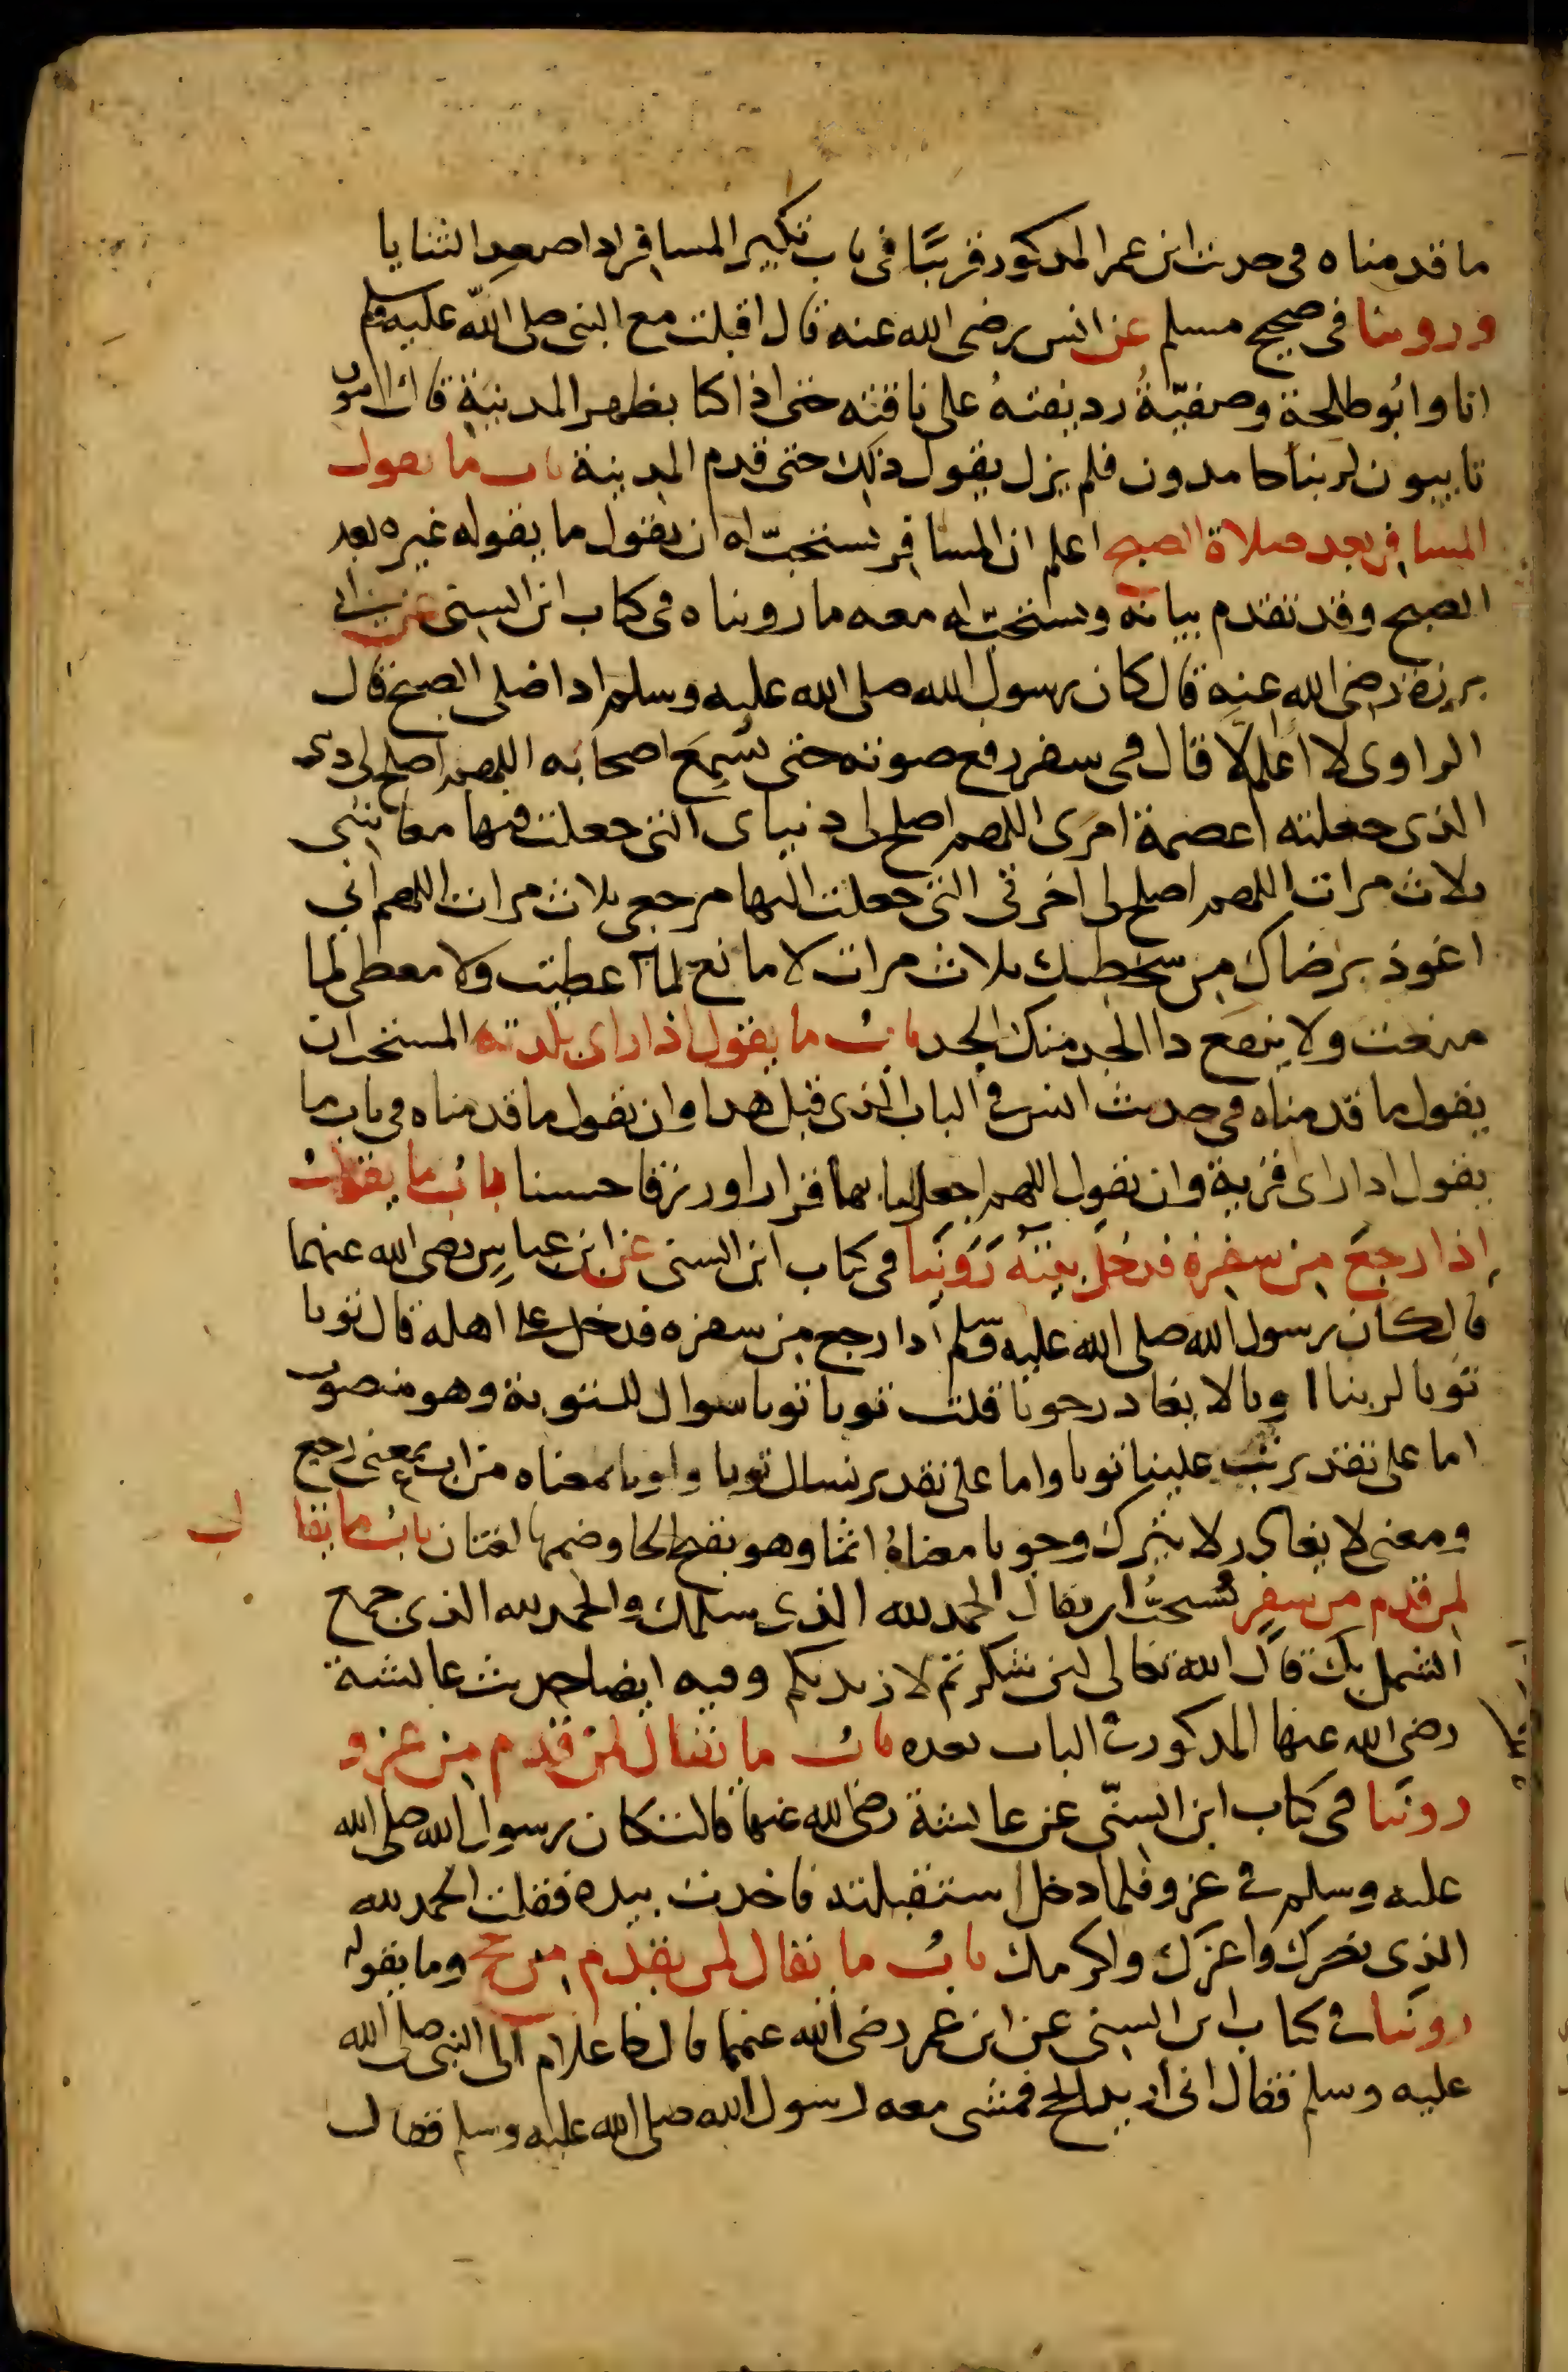 ما قدمناه في حديث ابن عمر المذكور قريبًا في باب تكبير المسافر اذا صعد الثنايا
وروينا في صحيح مسلم عن انس رضي الله عنه قال اقبلت مع النبي صلى الله عليه وسلم
انا وابُو طلحة وصفيّةُ رديفتهُ على ناقته حتى اذا كنا بظهر المدينة قال ايبون
تايبون لربنا حامدون فلم يزل يقول ذلك حتى قدم المدينة باب ما يقول
المسافر بعد صلاة الصبح اعلم ان المسافر يستحبّ له ان يقول ما يقوله غيره بعد
الصبح وقد تقدم بيانه ويستحبّ له معه ما رويناه في كتاب ابن السني عن ابي
برزة رضي الله عنه قال كان رسول الله صلى الله عليه وسلم اذا صلى الصبح قال
الراوي لا اعلم الا قال في سفر رفع صوته حتى يسمِعَ اصحابه اللهم اصلح لي ديني
الذي جعلته عصمة امري اللهم اصلح لي دنياي التي جعلت فيها معايشي
ثلاث مرات اللهم اصلح لي اخرتي التي جعلت اليها مرجعي ثلاث مرات اللهم اني
اعوذ برضاك من سخطك ثلاث مرات لا مانع لما اعطيت ولا معطي لما
منعت ولا ينفع ذا الجد منك الجد بابُ ما يقول اذا راى بلدته المستحب ان
يقول ما قدمناه في حديث انس في الباب الذي قبل هذا وان يقول ما قدمناه في باب ما
يقول اذا راى قرية وان يقول اللهم اجعل لنا بها قرارا ورزقا حسنا بابُ ما يقولُ
إذا رجعَ من سفره فدخلَ بيته رَوَينا في كتاب ابن السني عن ابن عباسٍ رضي الله عنهما
قال كان رسول الله صلى الله عليه وسلم اذا رجع من سفره فدخل على اهله قال توبا
توبا لربنا اوبا لا يغادر حوبا قلت توبا توبا سوال للتوبة وهو منصوب
اما على تقدير تب علينا توبا واما على تقدير نسال توبا واوبا بمعناه من اب بمعنى رجع
ومعنى لا يغادر لا يترك وحوبا معناهُ اثما وهو بفتح الحا وضمها لغتان بابُ ما يقال
لمن قدم من سفر يُستحبُّ ان يقال الحمد لله الذي سلمك والحمد لله الذي جمع
الشمل بك قال الله تعالى لين شكرتم لازيدنكم وفيه ايضا حديث عايشة
رضي الله عنها المذكور في الباب بعده بابُ ما يقال لمن قدم من غزو
روينا في كتاب ابن السنّي عن عايشة رضي الله عنها قالت كان رسول الله صلى الله
عليه وسلم في غزو فلما دخل استقبلته فاخذت بيده فقلت الحمد لله
الذي نصرك واعزك واكرمك بابُ ما يقال لمن يقدم من حج وما يقوله
روينا في كتاب ابن السني عن ابن عمر رضي الله عنهما قال جا غلام الى النبي صلى الله
عليه وسلم فقال اني اريد الحج فمشى معه رسول الله صلى الله عليه وسلم فقال